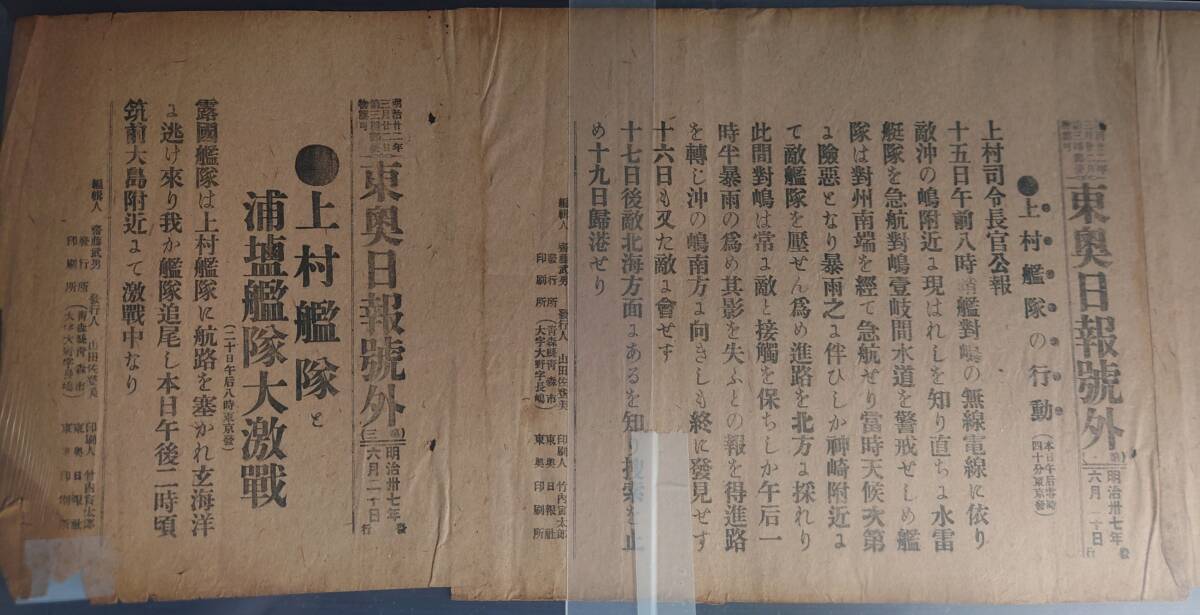 東奥日報號外
明治卅七年
六月二十日
發行
●上村艦隊の行動
(本日午后零時
四十分東京發)
上村司令長官公報
十五日午前八時哨艦對嶋の無線電線に依り
敵沖の嶋附近に現はれしを知り直ちに水雷
艇隊を急航對嶋壹岐間水道を警戒せしめ艦
隊は對州南端を經て急航せり當時天候次第
に險惡となり暴雨之に伴ひしか神崎附近に
て敵艦隊を壓せん爲め進路を北方に採れり
此間對嶋は常に敵と接觸を保ちしか午后一
時半暴雨の爲め其影を失ふとの報を得進路
を轉じ沖の嶋南方に向きしも終に發見せす
十六日も又た敵に會せす
十七日後敵北海方面にあるを知り捜索を止
め十九日歸港せり
編輯人 齋藤武男 發行人 山田佐登美 印刷人 竹内寅太郎
發行所 (青森縣青森市 東奥日報社
印刷所 (大字大野字長嶋) 東奥印刷所
明治廿二年
三月廿二日
第三種郵便
物認可
東奥日報號外
明治卅七年
六月二十日
發行
●上村艦隊と
浦塩艦隊大激戰
(二十日午后八時東京發)
露國艦隊は上村艦隊に航路を塞かれ玄海洋
に逃け來り我か艦隊追尾し本日午後二時頃
筑前大島附近にて激戰中なり
編輯人 齋藤武男 發行人 山田佐登美 印刷人 竹内寅太郎
發行所 (青森縣青森市 東奥日報社
印刷所